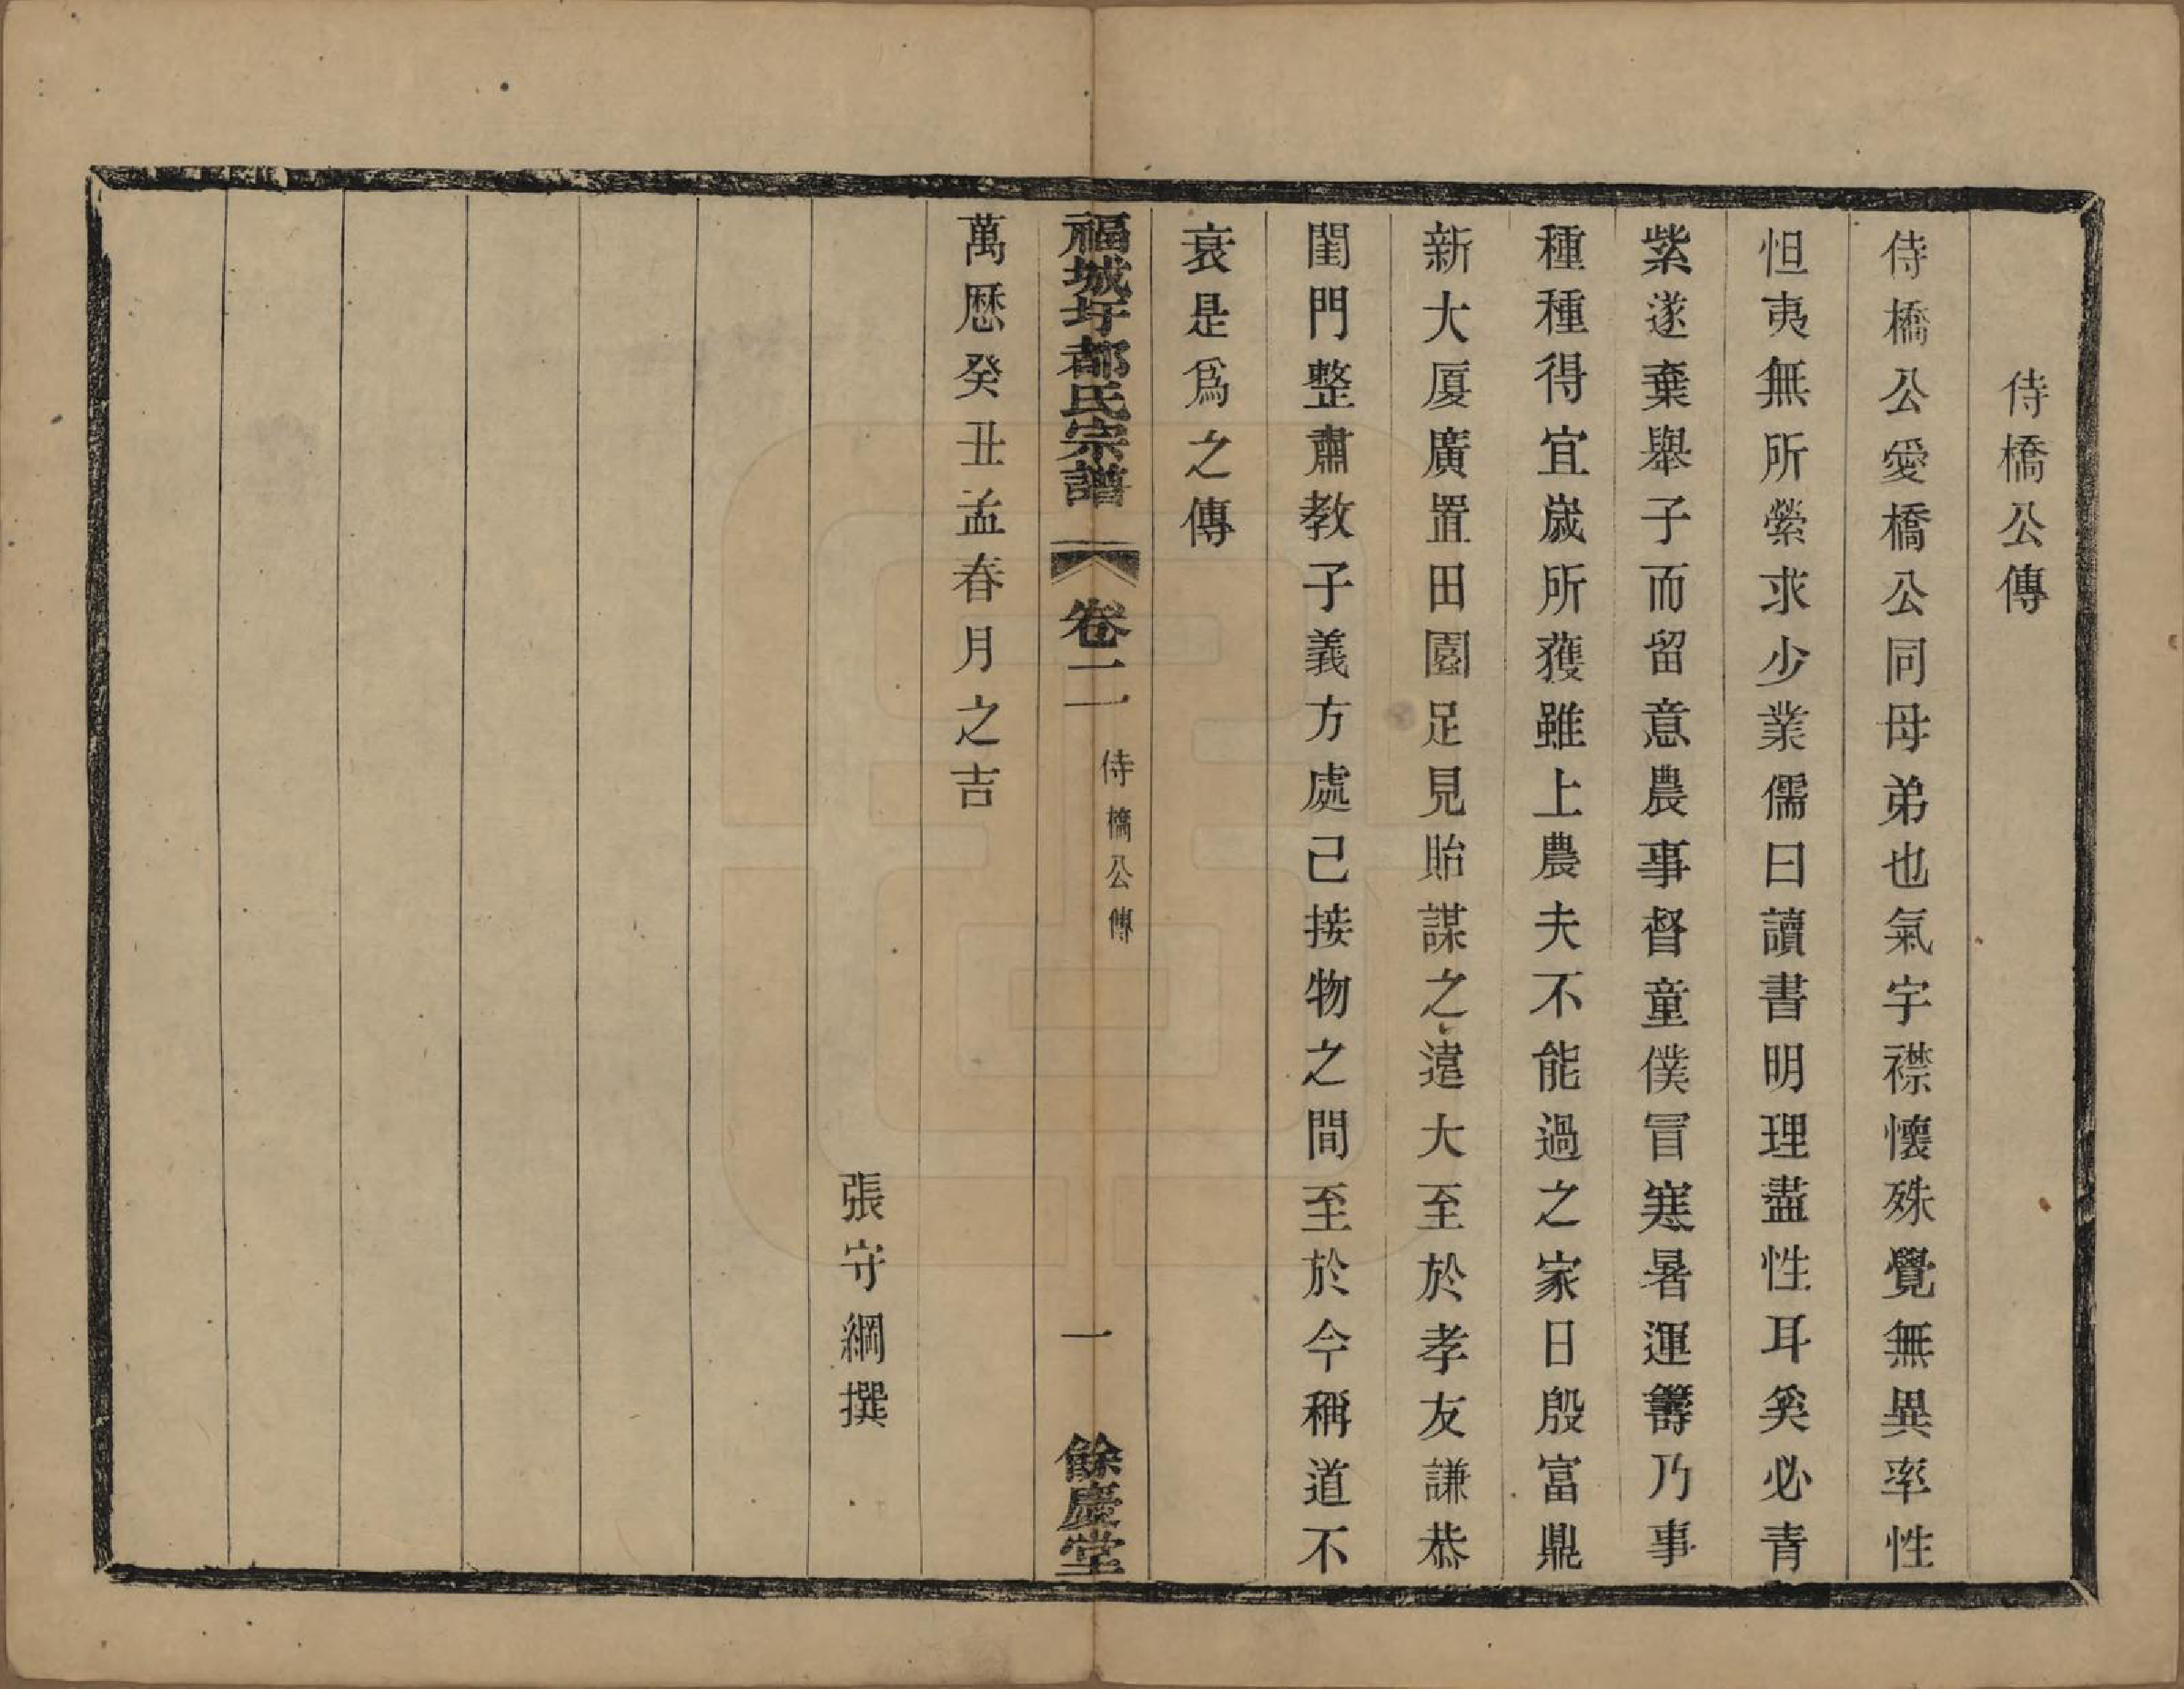 侍橋公傳
侍橋公愛橋公同母弟也氣宇襟懷殊覺無異率性
怛夷無所縈求少業儒曰讀書明理盡性耳奚必青
紫遂棄舉子而留意農事督童僕冒寒暑運籌乃事
種種得宜歲所獲雖上農夫不能過之家日殷富鼎
新大厦廣置田園足見貽謀之遠大至於孝友謙恭
閨門整肅教子義方處己接物之間至於今稱道不
衰是爲之傳
福城圩都氏宗譜 卷二 侍橋公傳 一 餘慶堂
萬歷癸丑孟春月之吉
張守綱撰